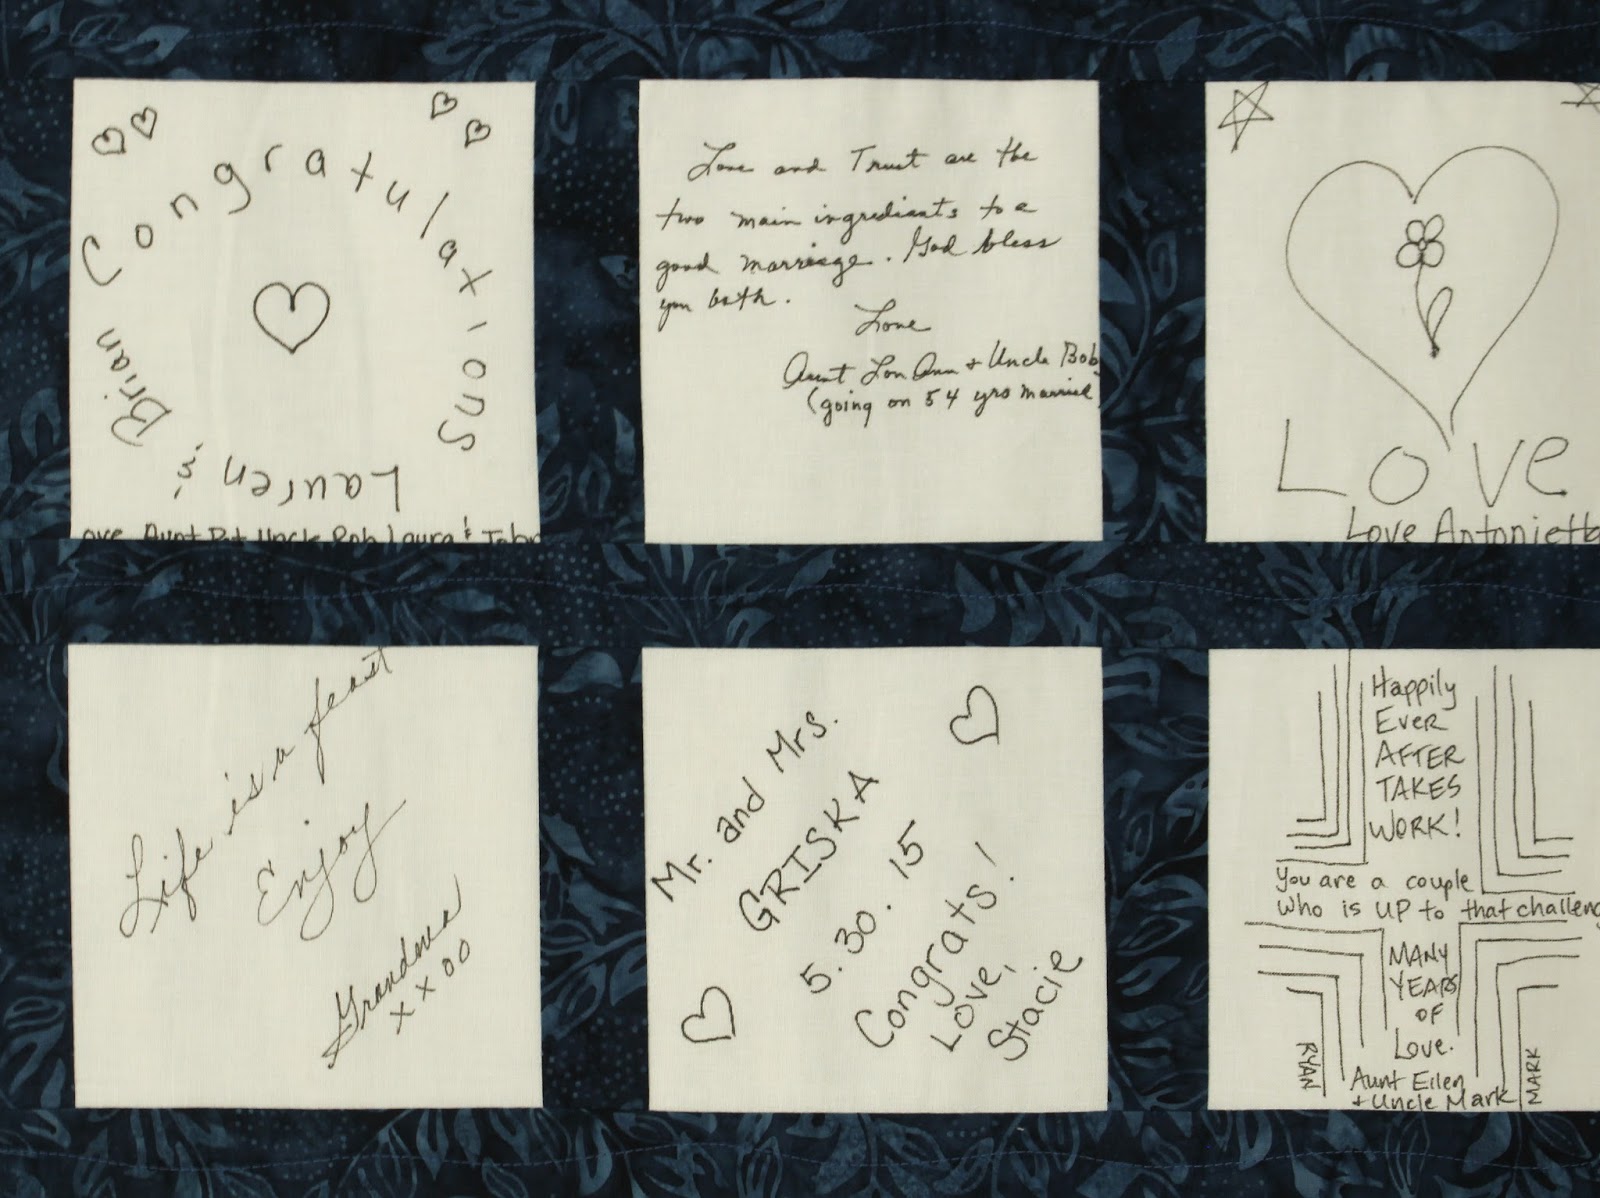 Congratulations
Brian & Lauren
Love Aunt Pat Uncle Bob Laura &
Love and Trust are the
two main ingrediants to a
good marriage. God bless
you both.
Love
Aunt Lou Ann + Uncle Bob
(going on 54 yrs married
LOVE
Love Antonietta
Life is a feast
Enjoy
Grandma
xxoo
Mr. and Mrs.
GRISKA
5.30.15
Congrats!
Love,
Stacie
Happily
Ever
AFTER
TAKES
WORK!
You are a couple
who is up to that challeng
MANY
YEARS
OF
Love.
RYAN
Aunt Eileen
+ Uncle Mark
MARK